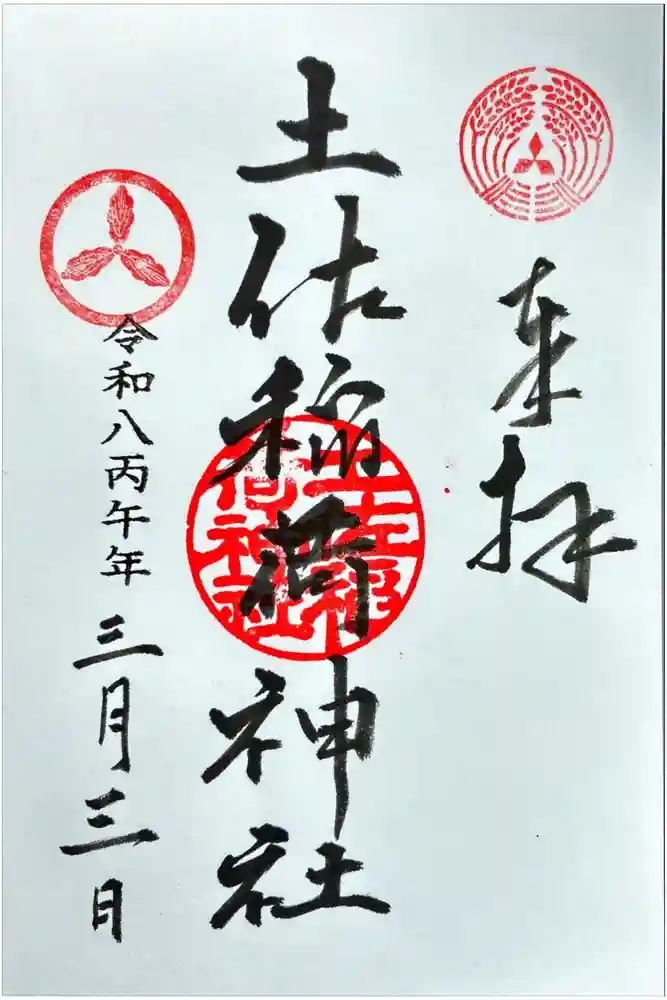 奉拝
土佐稲荷神社
土佐稲荷神社
令和八丙午年三月三日